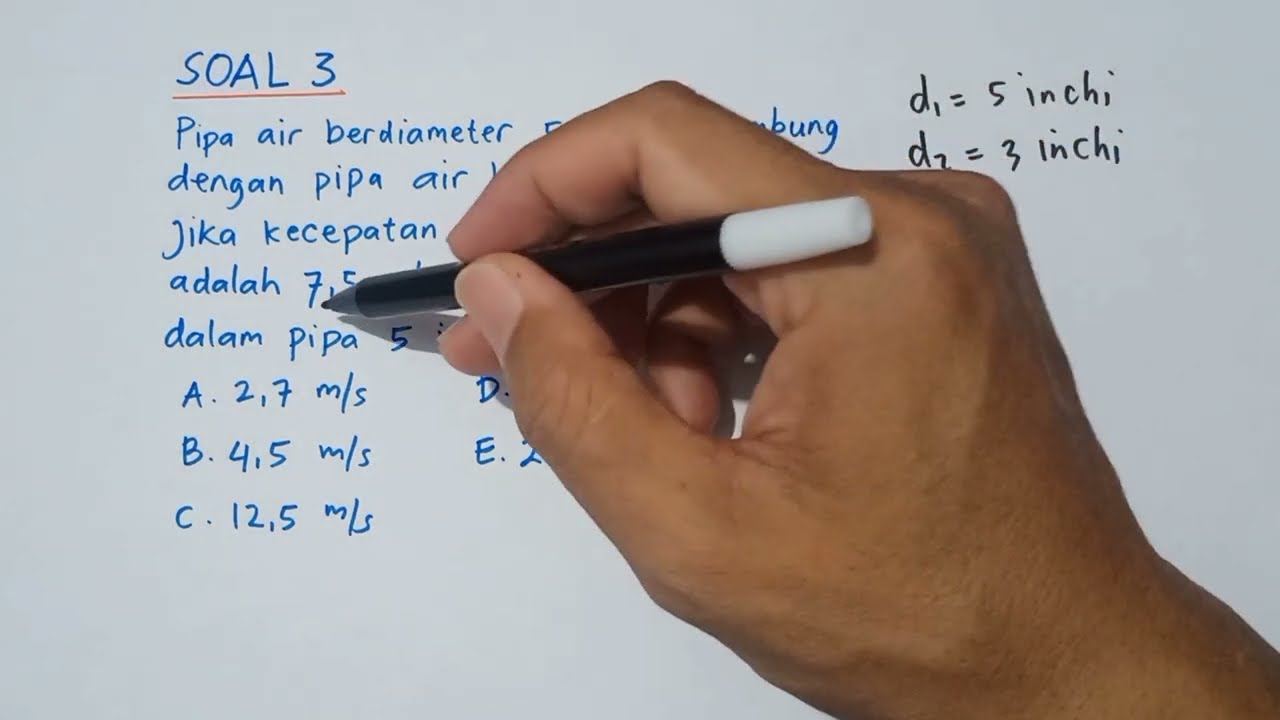 SOAL 3
Pipa air berdiameter
dengan pipa air
Jika kecepatan
adalah 7,5
dalam pipa 5
A. 2,7 m/s
D.
B. 4,5 m/s
E.
C. 12,5 m/s
d₁ = 5 inchi
d₂ = 3 inchi